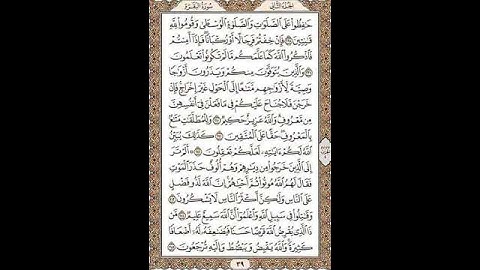 الجزء الثاني سورة البقرة
حَٰفِظُوا۟ عَلَى ٱلصَّلَوَٰتِ وَٱلصَّلَوٰةِ ٱلْوُسْطَىٰ وَقُومُوا۟ لِلَّهِ
قَٰنِتِينَ ٢٣٨ فَإِنْ خِفْتُمْ فَرِجَالًا أَوْ رُكْبَانًا فَإِذَآ أَمِنتُمْ
فَٱذْكُرُوا۟ ٱللَّهَ كَمَا عَلَّمَكُم مَّا لَمْ تَكُونُوا۟ تَعْلَمُونَ
٢٣٩ وَٱلَّذِينَ يُتَوَفَّوْنَ مِنكُمْ وَيَذَرُونَ أَزْوَٰجًا
وَصِيَّةً لِّأَزْوَٰجِهِم مَّتَٰعًا إِلَى ٱلْحَوْلِ غَيْرَ إِخْرَاجٍ فَإِنْ
خَرَجْنَ فَلَا جُنَاحَ عَلَيْكُمْ فِى مَا فَعَلْنَ فِىٓ أَنفُسِهِنَّ
مِن مَّعْرُوفٍ وَٱللَّهُ عَزِيزٌ حَكِيمٌ ٢٤٠ وَلِلْمُطَلَّقَٰتِ مَتَٰعٌۢ
بِٱلْمَعْرُوفِ حَقًّا عَلَى ٱلْمُتَّقِينَ ٢٤١ كَذَٰلِكَ يُبَيِّنُ
ٱللَّهُ لَكُمْ ءَايَٰتِهِۦ لَعَلَّكُمْ تَعْقِلُونَ ٢٤٢ أَلَمْ تَرَ
إِلَى ٱلَّذِينَ خَرَجُوا۟ مِن دِيَٰرِهِمْ وَهُمْ أُلُوفٌ حَذَرَ ٱلْمَوْتِ
فَقَالَ لَهُمُ ٱللَّهُ مُوتُوا۟ ثُمَّ أَحْيَٰهُمْ إِنَّ ٱللَّهَ لَذُو فَضْلٍ
عَلَى ٱلنَّاسِ وَلَٰكِنَّ أَكْثَرَ ٱلنَّاسِ لَا يَشْكُرُونَ ٢٤٣
وَقَٰتِلُوا۟ فِى سَبِيلِ ٱللَّهِ وَٱعْلَمُوٓا۟ أَنَّ ٱللَّهَ سَمِيعٌ عَلِيمٌ ٢٤٤ مَّن
ذَا ٱلَّذِى يُقْرِضُ ٱللَّهَ قَرْضًا حَسَنًا فَيُضَٰعِفَهُۥ لَهُۥٓ أَضْعَافًا
كَثِيرَةً وَٱللَّهُ يَقْبِضُ وَيَبْصُۜطُ وَإِلَيْهِ تُرْجَعُونَ ٢٤٥
٣٩